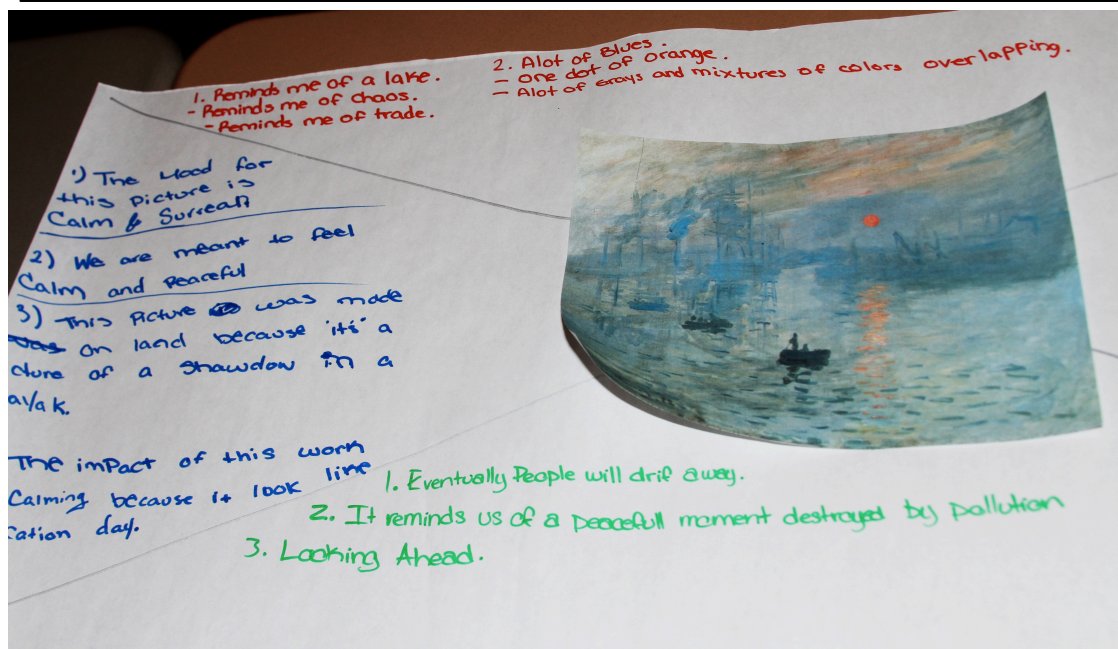 1. Reminds me of a lake.
- Reminds me of chaos.
- Reminds me of trade.
2. Alot of Blues.
- one dot of orange.
- Alot of Grays and mixtures of colors overlapping.
1) The Mood for
this Picture is
Calm & Surreal
2) We are meant to feel
Calm and Peaceful
3) This Picture was made
on land because it's a
cture of a shawdow in a
ayak.
The imPact of this work
Calming because it look like
cation day.
1. Eventually People will drif away.
2. It reminds us of a peacefull moment destroyed by pollution
3. Looking Ahead.